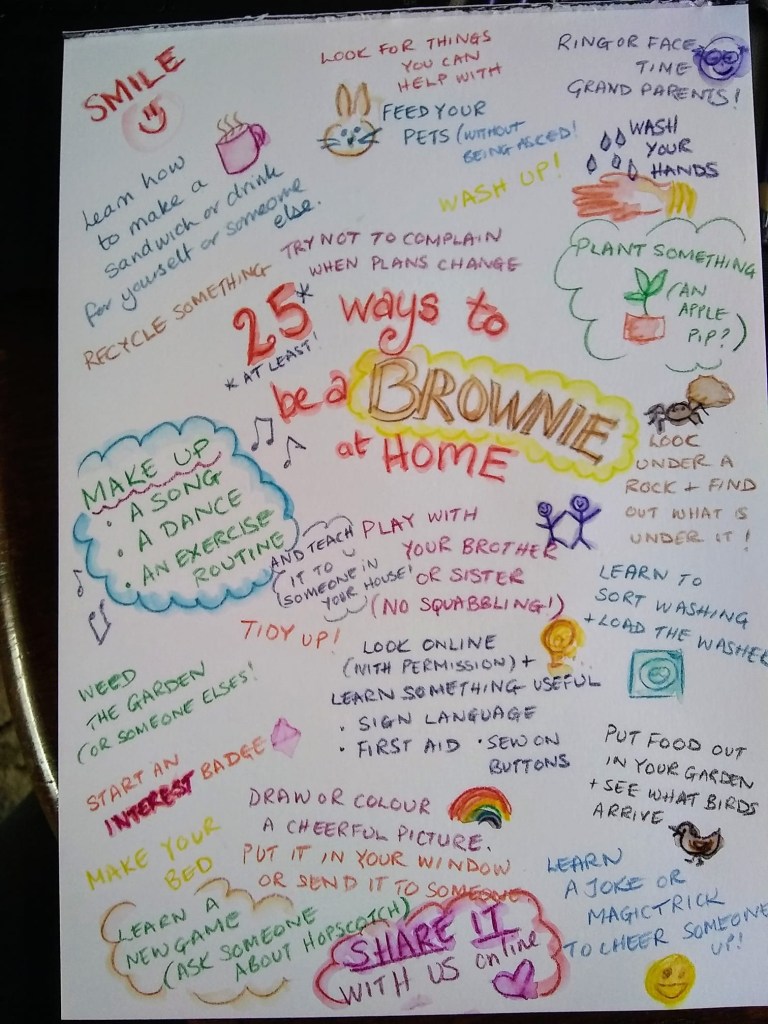 SMILE
LOOK FOR THINGS
YOU CAN
HELP WITH
RING OR FACE
TIME
GRAND PARENTS!
FEED YOUR
PETS (WITHOUT
BEING ASKED!
WASH
YOUR
HANDS
Learn how
to make a
sandwich or drink
for yourself or someone
else.
WASH UP!
TRY NOT TO COMPLAIN
WHEN PLANS CHANGE
PLANT SOMETHING
(AN
APPLE
PIP?)
RECYCLE SOMETHING
25* ways to
* AT LEAST!
be a BROWNIE
at HOME
LOOK
UNDER A
ROCK + FIND
OUT WHAT IS
UNDER IT!
MAKE UP
• A SONG
• A DANCE
• AN EXERCISE
ROUTINE
AND TEACH
IT TO
SOMEONE IN
YOUR HOUSE!
PLAY WITH
YOUR BROTHER
OR SISTER
(NO SQUABBLING!)
LEARN TO
SORT WASHING
+ LOAD THE WASHER
TIDY UP!
LOOK ONLINE
(WITH PERMISSION) +
LEARN SOMETHING USEFUL
• SIGN LANGUAGE
• FIRST AID • SEW ON
BUTTONS
WEED
THE GARDEN
(OR SOMEONE ELSES!)
START AN
INTEREST BADGE
PUT FOOD OUT
IN YOUR GARDEN
+ SEE WHAT BIRDS
ARRIVE
DRAW OR COLOUR
A CHEERFUL PICTURE.
PUT IT IN YOUR WINDOW
OR SEND IT TO SOMEONE.
MAKE YOUR
BED
LEARN A
NEW GAME
(ASK SOMEONE
ABOUT HOPSCOTCH)
LEARN
A JOKE OR
MAGIC TRICK
TO CHEER SOMEONE
UP!
SHARE IT
WITH US online